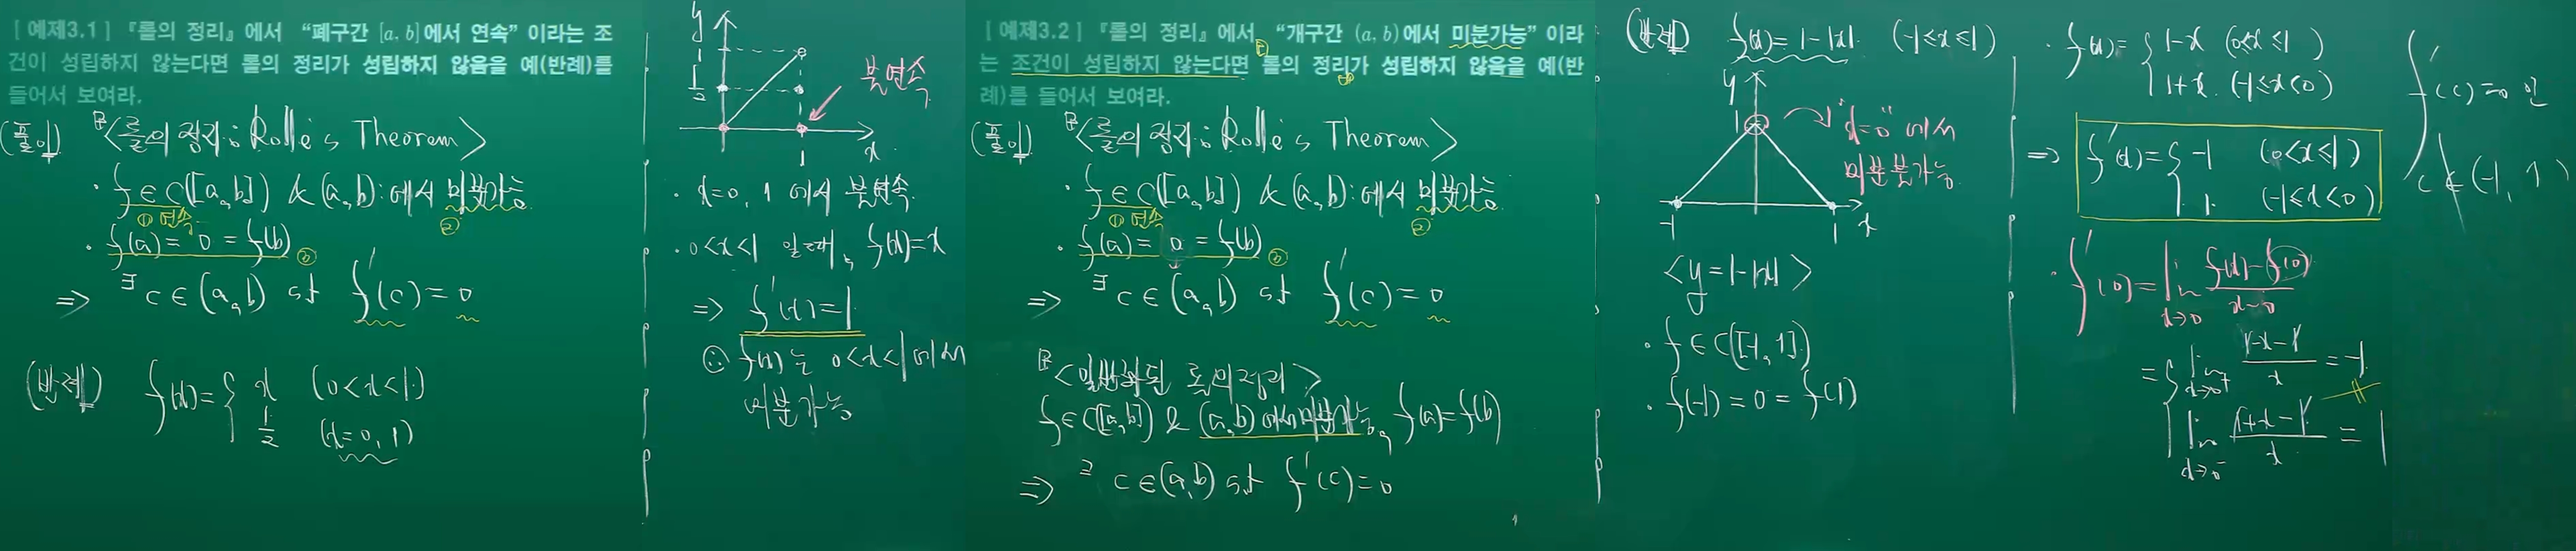 [ 예제3.1 ] 『롤의 정리』에서 “폐구간 [a, b]에서 연속” 이라는 조
건이 성립하지 않는다면 롤의 정리가 성립하지 않음을 예(반례)를
들어서 보여라.
(풀이) <롤의 정리 : Rolle's Theorem>
· f ∈ C([a, b]) & (a, b) : 에서 미분가능
① 연속 ②
· f(a) = 0 = f(b) ③
⇒ ∃c ∈ (a, b) st f'(c) = 0
(반례) f(x) = { x (0<x<1)
1/2 (x=0, 1)
y
1
1/2
불연속
1
x
· x=0, 1 에서 불연속.
· 0<x<1 일 때, f(x)=x
⇒ f'(x)=1
∴ f(x)는 0<x<1 에서
미분가능
[ 예제3.2 ] 『롤의 정리』에서 “개구간 (a, b)에서 미분가능” 이라
는 조건이 성립하지 않는다면 롤의 정리가 성립하지 않음을 예(반
례)를 들어서 보여라.
(풀이) <롤의 정리 : Rolle's Theorem>
· f ∈ C([a, b]) & (a, b) : 에서 미분가능
① 연속 ②
· f(a) = 0 = f(b) ③
⇒ ∃c ∈ (a, b) st f'(c) = 0
<일반화된 롤의 정리>
f ∈ C([a, b]) & (a, b) 에서 미분가능, f(a)=f(b)
⇒ ∃ c ∈ (a, b) s.t f'(c)=0
(반례) f(x) = 1-|x| (-1≤x≤1)
y
1
"x=0" 에서
미분불가능
-1 1 x
<y=1-|x|>
· f ∈ C([-1, 1])
· f(-1) = 0 = f(1)
· f(x) = { 1-x (0<x≤1)
1+x (-1≤x<0)
⇒ f'(x) = { -1 (0<x≤1)
1 (-1≤x<0)
· f'(0) = lim x→0 f(x)-f(0) / x-0
= { lim x→0+ 1-x-1 / x = -1
lim x→0- 1+x-1 / x = 1
f'(c)=0 인
c ∉ (-1, 1)